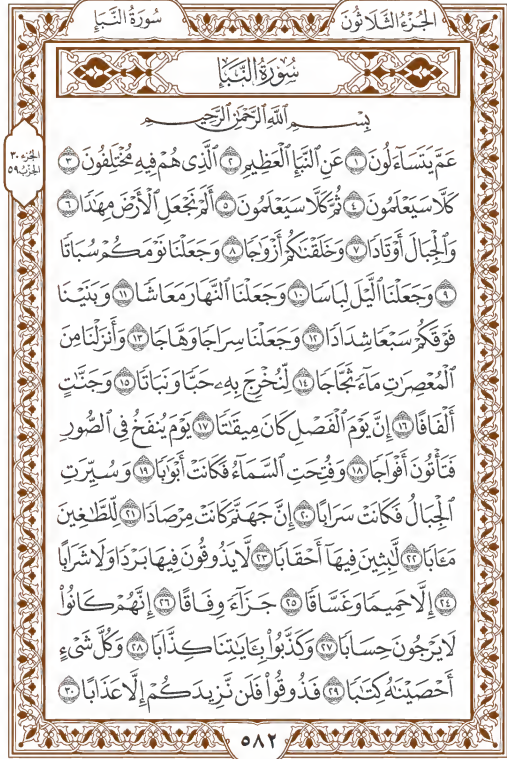 سُورَةُ النَّبَإِ
الجُزْءُ الثَّلَاثُونَ
سُورَةُ النَّبَإِ
بِسْمِ ٱللَّهِ ٱلرَّحْمَٰنِ ٱلرَّحِيمِ
الجزء ٣٠
الحزب ٥٩
عَمَّ يَتَسَآءَلُونَ ١ عَنِ ٱلنَّبَإِ ٱلْعَظِيمِ ٢ ٱلَّذِى هُمْ فِيهِ مُخْتَلِفُونَ ٣
كَلَّا سَيَعْلَمُونَ ٤ ثُمَّ كَلَّا سَيَعْلَمُونَ ٥ أَلَمْ نَجْعَلِ ٱلْأَرْضَ مِهَٰدًا ٦
وَٱلْجِبَالَ أَوْتَادًا ٧ وَخَلَقْنَٰكُمْ أَزْوَٰجًا ٨ وَجَعَلْنَا نَوْمَكُمْ سُبَاتًا
٩ وَجَعَلْنَا ٱلَّيْلَ لِبَاسًا ١٠ وَجَعَلْنَا ٱلنَّهَارَ مَعَاشًا ١١ وَبَنَيْنَا
فَوْقَكُمْ سَبْعًا شِدَادًا ١٢ وَجَعَلْنَا سِرَاجًا وَهَّاجًا ١٣ وَأَنزَلْنَا مِنَ
ٱلْمُعْصِرَٰتِ مَآءً ثَجَّاجًا ١٤ لِّنُخْرِجَ بِهِۦ حَبًّا وَنَبَاتًا ١٥ وَجَنَّٰتٍ
أَلْفَافًا ١٦ إِنَّ يَوْمَ ٱلْفَصْلِ كَانَ مِيقَٰتًا ١٧ يَوْمَ يُنفَخُ فِى ٱلصُّورِ
فَتَأْتُونَ أَفْوَاجًا ١٨ وَفُتِحَتِ ٱلسَّمَآءُ فَكَانَتْ أَبْوَٰبًا ١٩ وَسُيِّرَتِ
ٱلْجِبَالُ فَكَانَتْ سَرَابًا ٢٠ إِنَّ جَهَنَّمَ كَانَتْ مِرْصَادًا ٢١ لِّلطَّٰغِينَ
مَـَٔابًا ٢٢ لَّٰبِثِينَ فِيهَآ أَحْقَابًا ٢٣ لَّا يَذُوقُونَ فِيهَا بَرْدًا وَلَا شَرَابًا
٢٤ إِلَّا حَمِيمًا وَغَسَّاقًا ٢٥ جَزَآءً وِفَاقًا ٢٦ إِنَّهُمْ كَانُوا۟
لَا يَرْجُونَ حِسَابًا ٢٧ وَكَذَّبُوا۟ بِـَٔايَٰتِنَا كِذَّابًا ٢٨ وَكُلَّ شَىْءٍ
أَحْصَيْنَٰهُ كِتَٰبًا ٢٩ فَذُوقُوا۟ فَلَن نَّزِيدَكُمْ إِلَّا عَذَابًا ٣٠
٥٨٢